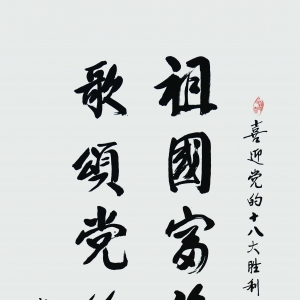 喜迎党的十八大胜利
祖國富
歌頌党